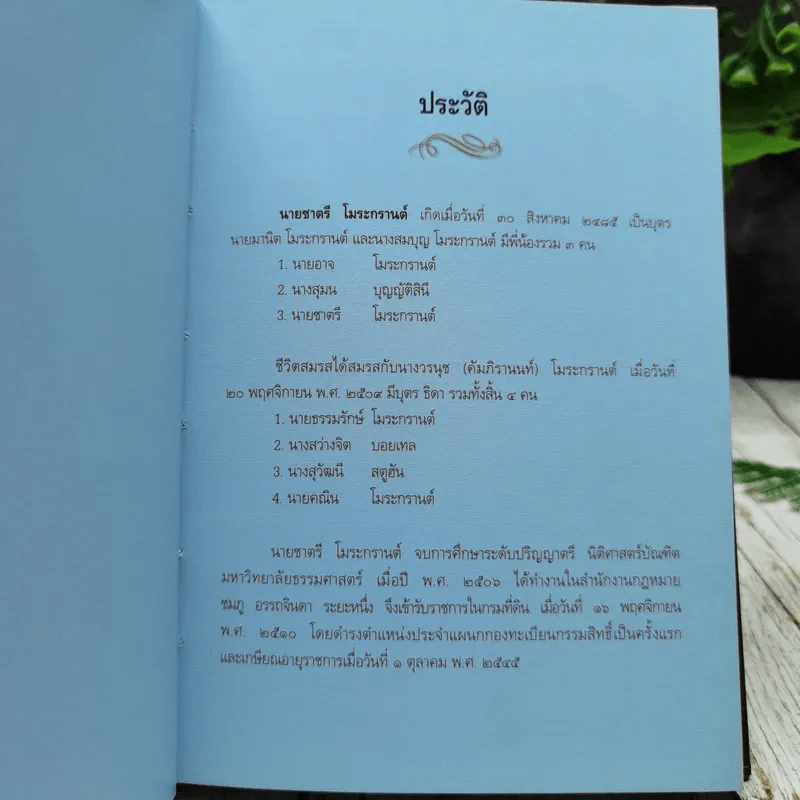 ประวัติ
นายชาตรี โมระกรานต์ เกิดเมื่อวันที่ ๓๐ สิงหาคม ๒๔๘๕ เป็นบุตร
นายมานิต โมระกรานต์ และนางสมบุญ โมระกรานต์ มีพี่น้องรวม ๓ คน
1. นายอาจ โมระกรานต์
2. นางสุมน บุญญัติสินี
3. นายชาตรี โมระกรานต์
ชีวิตสมรสได้สมรสกับนางวรนุช (คัมภิรานนท์) โมระกรานต์ เมื่อวันที่
๒๐ พฤศจิกายน พ.ศ. ๒๕๐๙ มีบุตร ธิดา รวมทั้งสิ้น ๔ คน
1. นายธรรมรักษ์ โมระกรานต์
2. นางสว่างจิต บอยเทล
3. นางสุวัฒนี สตูฮัน
4. นายคณิน โมระกรานต์
นายชาตรี โมระกรานต์ จบการศึกษาระดับปริญญาตรี นิติศาสตร์บัณฑิต
มหาวิทยาลัยธรรมศาสตร์ เมื่อปี พ.ศ. ๒๕๐๖ ได้ทำงานในสำนักงานกฎหมาย
ชมภู อรรถจินดา ระยะหนึ่ง จึงเข้ารับราชการในกรมที่ดิน เมื่อวันที่ ๑๖ พฤศจิกายน
พ.ศ. ๒๕๑๐ โดยดำรงตำแหน่งประจำแผนกกองทะเบียนกรรมสิทธิ์เป็นครั้งแรก
และเกษียณอายุราชการเมื่อวันที่ ๑ ตุลาคม พ.ศ. ๒๕๔๕